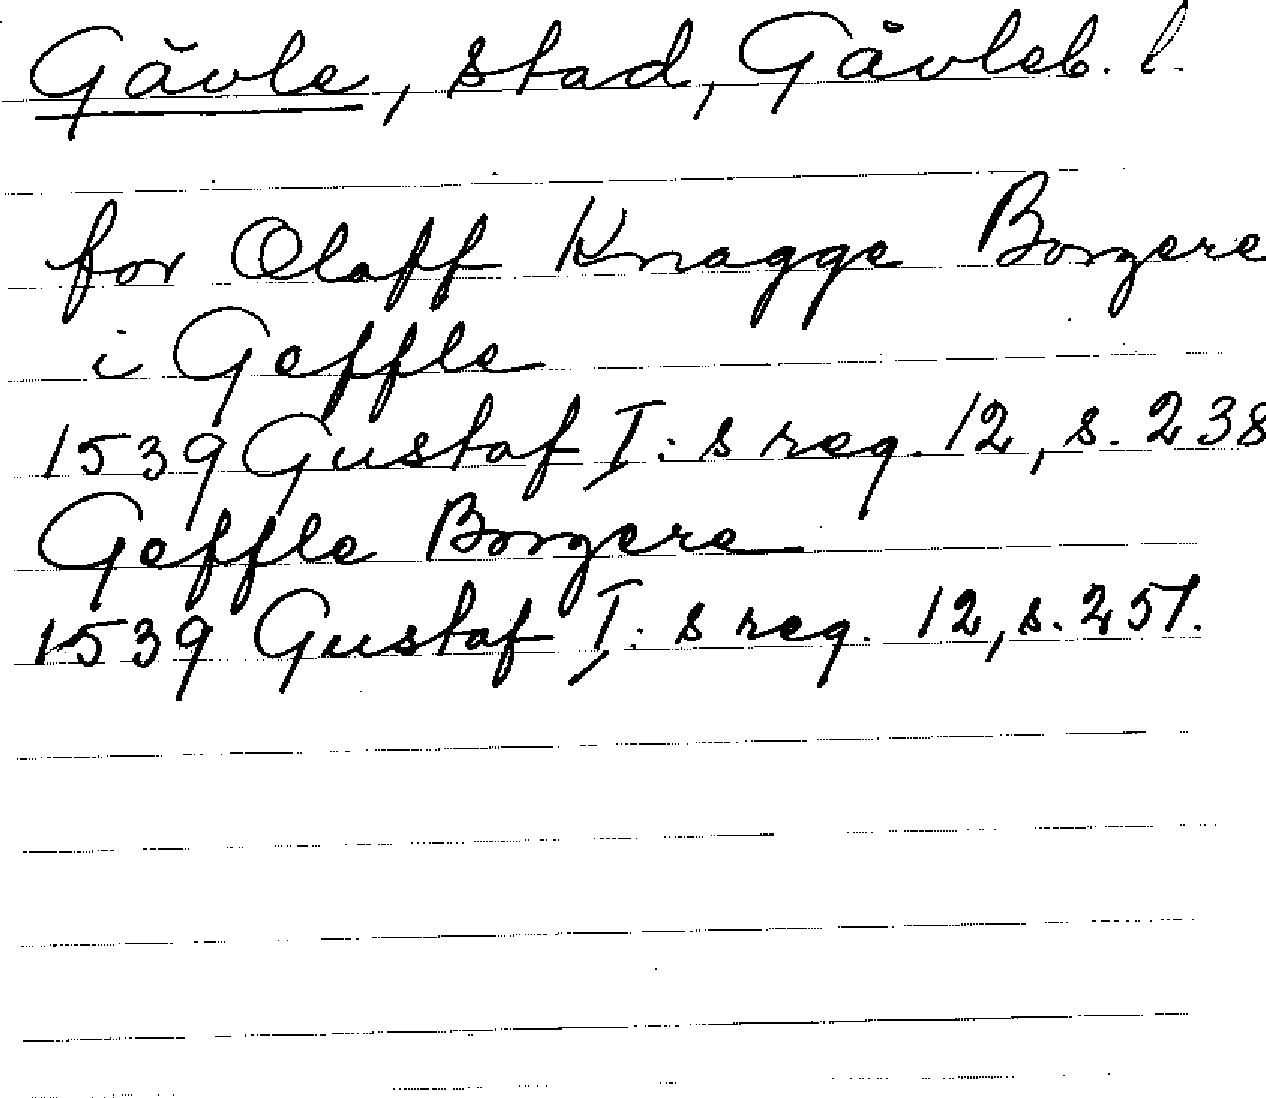 Gävle, stad, Gävleb. l.
for Olaff Knagge Borgere
i Geffle
1539 Gustaf I:s reg. 12, s. 238
Geffle Borgere
1539 Gustaf I:s reg. 12, s. 257.